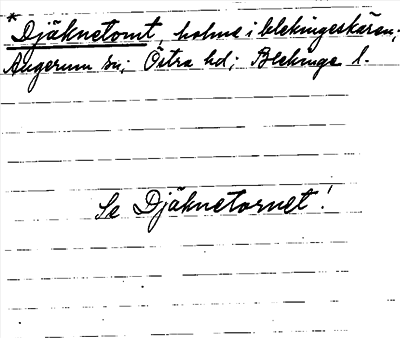 * Djäknetomt, holme i blekingeskären;
Augerum sn; Östra hd; Blekinge l.
Se Djäknetornet!